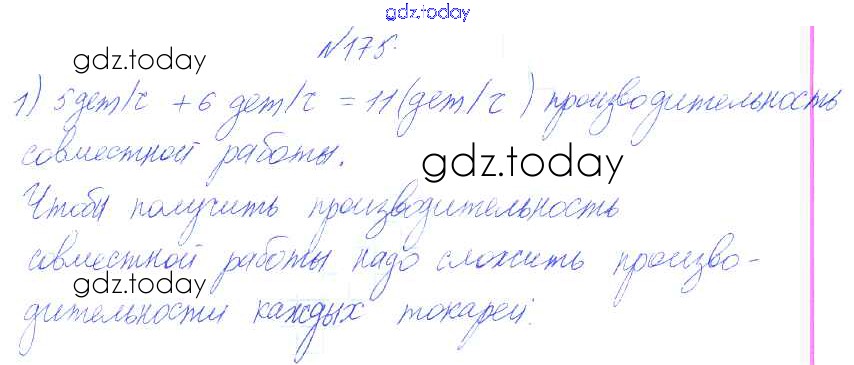 gdz.today
№175.
gdz.today
1) 5 дет/ч + 6 дет/ч = 11 (дет/ч) производительность
совместной работы.
gdz.today
Чтоби получить производительность
совместной работы надо сложить произво-
gdz.today
дительности каждых токарей.